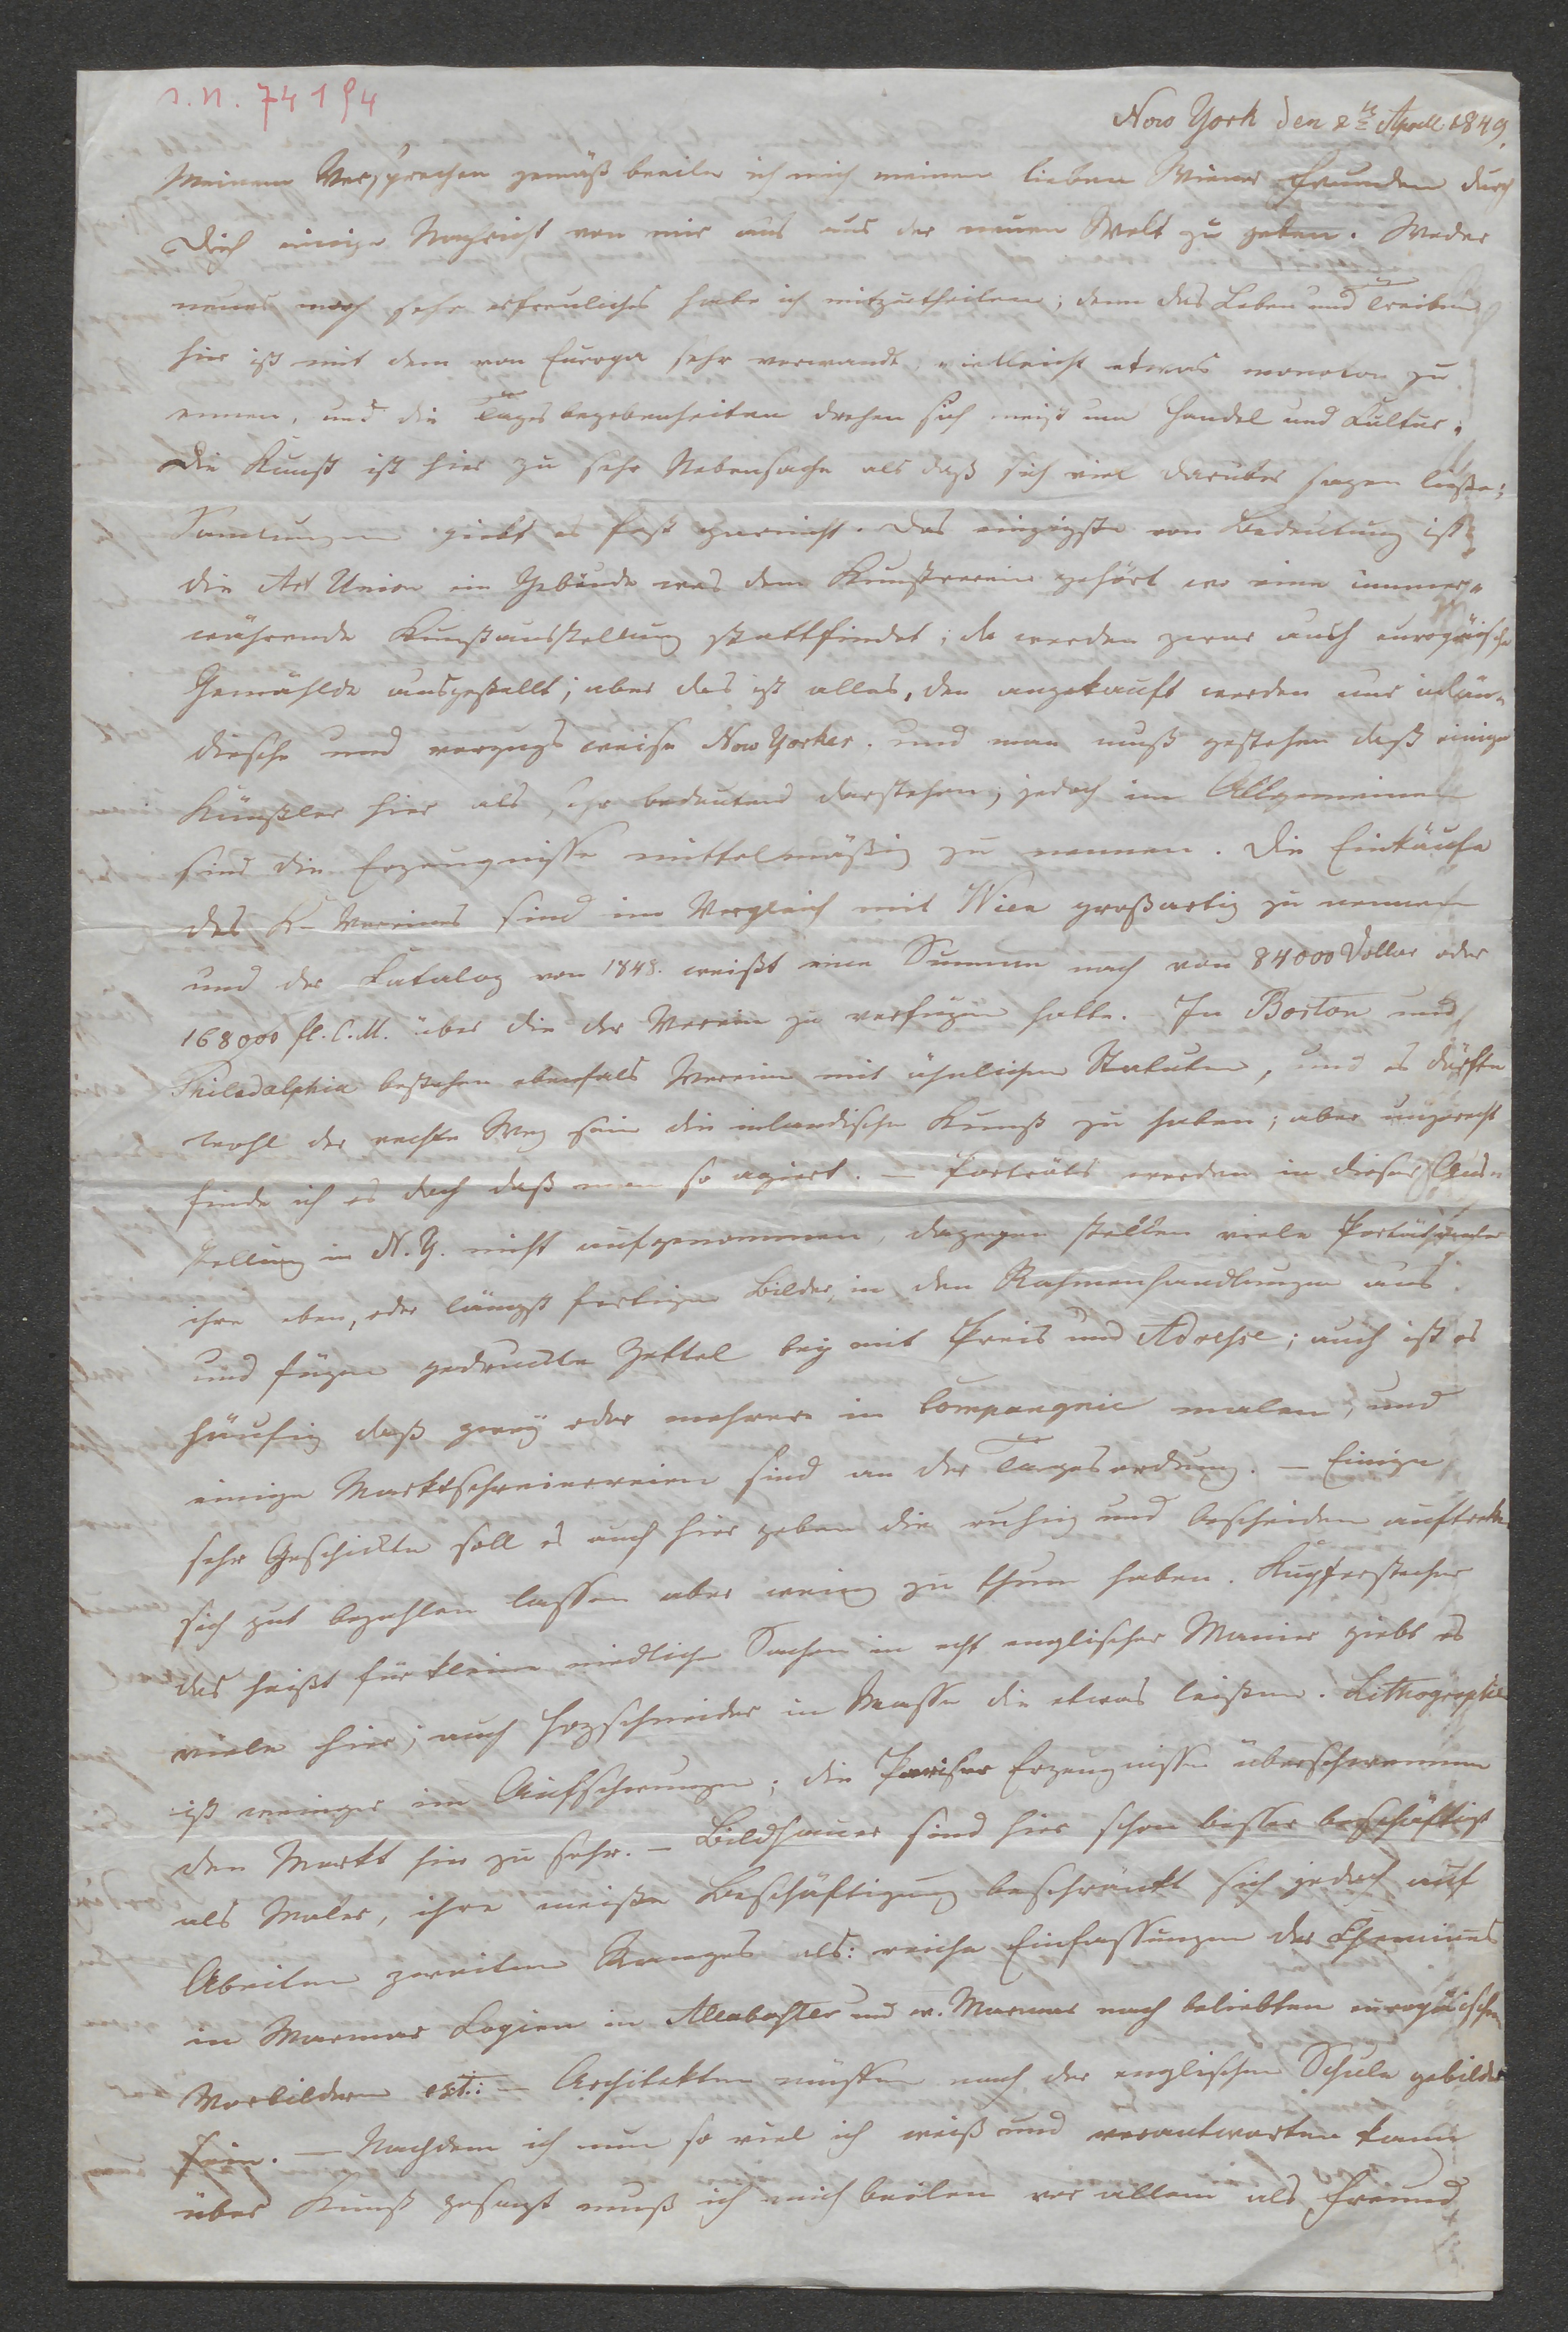 I.N. 74194
New York den 2ts April 1849.
Meinem Versprechen gemäß beeile ich mich meinen lieben Wiener Freunden durch
Dich einige Nachricht von mir aus aus der neuen Welt zu geben. Weder
neues noch sehr erfreuliches habe ich mitzutheilen; denn das Leben und Treiben
hier ist mit dem von Europa sehr verwandt, vielleicht etwas monoton zu
ennen, und die Tagesbegebenheiten drehen sich meist um Handel und Cultur.
Die Kunst ist hier zu sehr Nebensache als daß sich viel darüber sagen ließe;
Samlungen giebt es fast garnicht. Das einzigste von Bedeutung ist
die Art Union ein Gebäude was dem Kunstverein gehört wo eine immer-
währende Kunstausstellung stattfindet; da werden zwar auch europäische
Gemählde ausgestellt; aber das ist alles, den angekauft werden nur inlän-
dische und vorzugsweise New Yorker. und man muß gestehen daß einige
Künstler hier als sehr bedeutend darstehen; jedoch im Allgemeinen
sind die Erzeugnisse mittelmäßig zu nennen. Die Einkäufe
des K-Vereines sind im Vergleich mit Wien großartig zu nennen
und der Catalog von 1848. weißt eine Summe nach von 84000 Dollar oder
168000 fl. C.M. über die der Verein zu verfügen hatte. In Boston und
Philadalphia bestehen ebenfals Vereine mit ähnlichen Statuten, und es dürfte
wohl der rechte Weg sein die inlandische Kunst zu heben; aber ungerecht
finde ich es doch daß man so agiert. – Porträts werden in dieser Aus-
stellung in N.Y. nicht aufgenommen, dagegen stellen viele Porträtmaler
ihre eben, oder längst fertigen Bilder, in den Rahmenhandlungen aus.
und fügen gedruckte Zettel bey mit Preis und Adresse; auch ist es
häufig daß zwey oder mehrere in Compangnie malen, und
einige Marktschreiereien sind an der Tagesordnung. – Einige
sehr Geschickte soll es auch hier geben die ruhig und bescheiden auftreten
sich gut bezahlen lassen aber wenig zu thun haben. Kupferstecher
das heißt für kleine niedliche Sachen in echt englischer Manier giebt es
viele hier; auch Hozschneider in Masse die etwas leisten. Lithographie
ist weniger im Aufschwunge; die Pariser Erzeugnisse überschwemmen
den Markt hier zu sehr. – Bildhauer sind hier schon besser beschäftigt
als Maler, ihre meiste Beschäftigung beschränkt sich jedoch auf
Abeiten zweiten Ranges als: reiche Einfassungen der Chemines
in Marmor Copien in Allabaster und w. Marmor nach beliebten europäischen
Vorbildern ect: – Architekten müssen nach der englischen Schule gebildet
sein. – Nachdem ich nun so viel ich weiß und verantworten kann
über Kunst gesagt muß ich mich beeilen vor allem als Freund